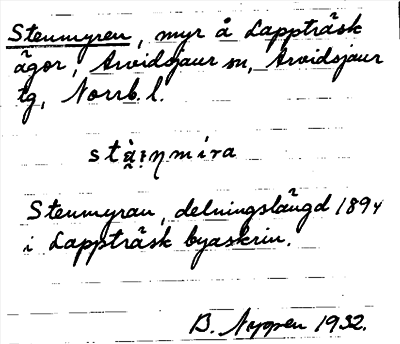 Stenmyren, myr å Lappträsk
ägor, Arvidsjaur sn, Arvidsjaur
tg, Norrb. l.
Stenmyran, delningslängd 1894
i Lappträsk byaskrin.
B. Nygren 1932.